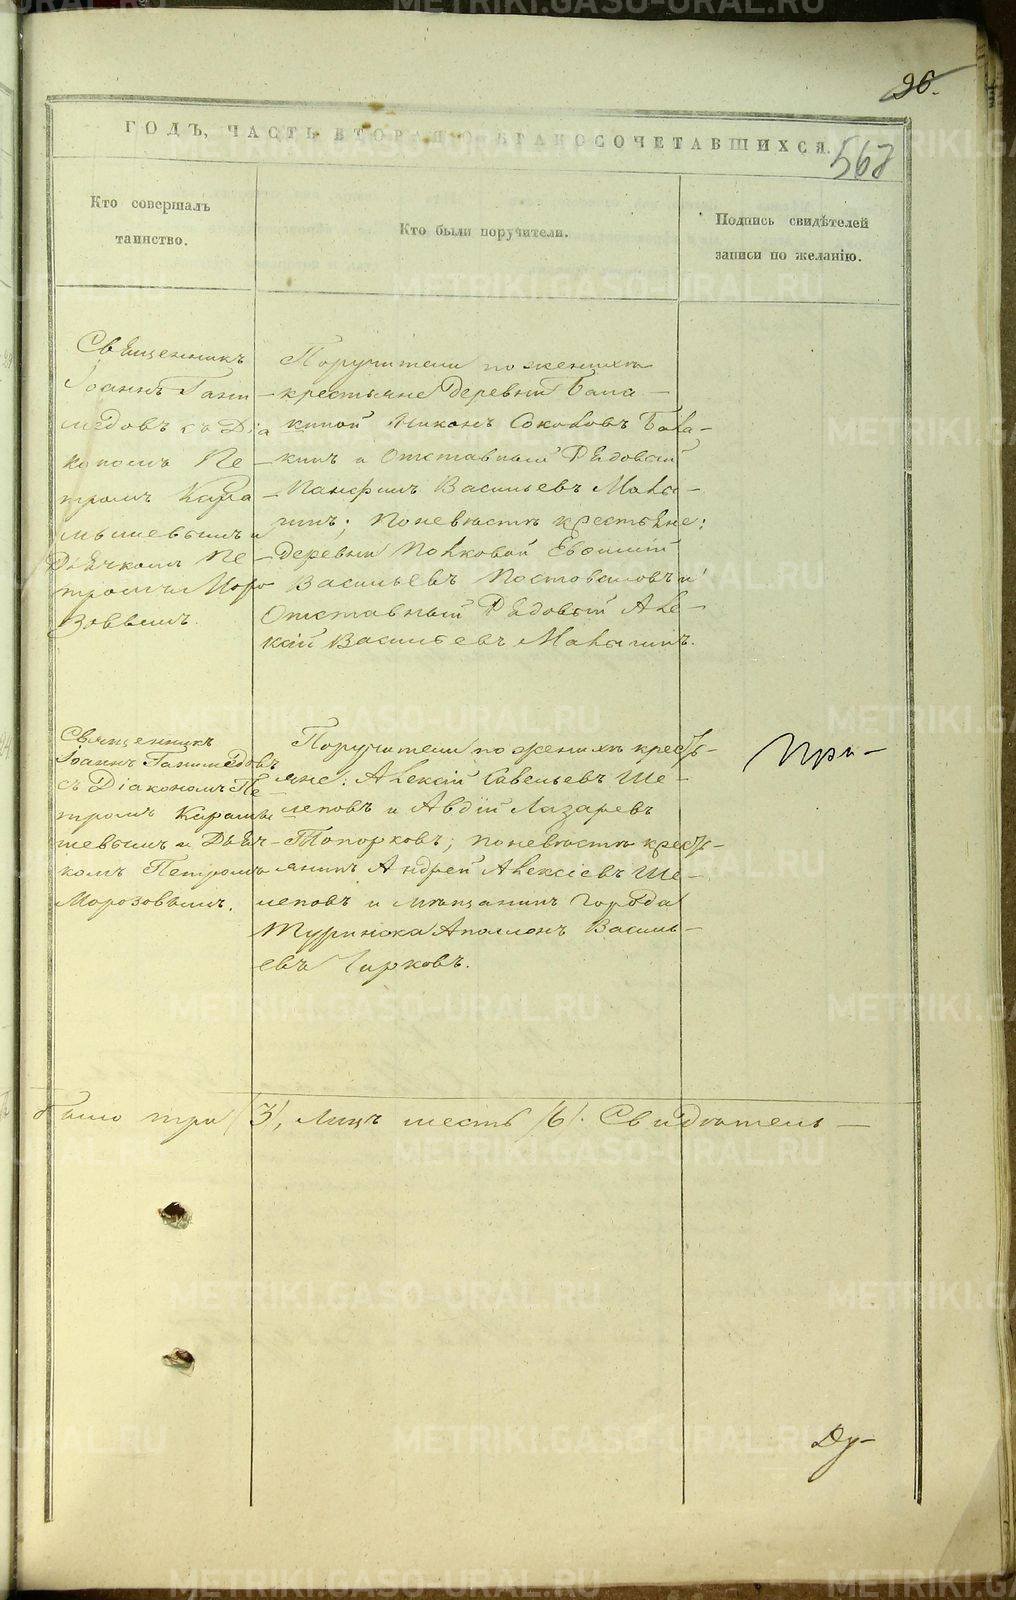 96.
ГОДЪ, ЧАСТЬ ВТОРАЯ О БРАКОСОЧЕТАВШИХСЯ.
568
Кто совершалъ
таинство.
Кто были поручители.
Подпись свидѣтелей
записи по желанію.
Священникъ
Іоаннъ Гани-
медовъ съ Діа
кономъ Пе-
тромъ Кара-
мышевымъ и
Дьячкомъ Пе-
тромъ Моро
зовымъ.
Поручители по женихѣ
крестьяне деревни Бала-
киной Никонъ Соколовъ Бала-
кинъ и Отставный Рядовый
Панфилъ Васильевъ
по невѣстѣ крестьяне:
деревни Евфимій
Васильевъ Постоваловъ и
Отставный Рядовый Але-
ксій Васильевъ
Священникъ
Іоаннъ Ганимедовъ
съ Діакономъ Пе-
тромъ Карамы
шевымъ и Дьяч-
комъ Петромъ
Морозовымъ.
Поручители по женихѣ кресть-
яне: Алексій Савельевъ Ше-
леповъ и Авдій Лазаревъ
Топорковъ; по невѣстѣ кресть-
янинъ Андрей Алексіевъ Ше-
леповъ и мѣщанинъ города
Туринска Аполлонъ Василь-
евъ Чирковъ.
При-
было три /3/, лицъ шесть /6/. Свидѣтель-
Ду-
METRIKI.GASO-URAL.RU